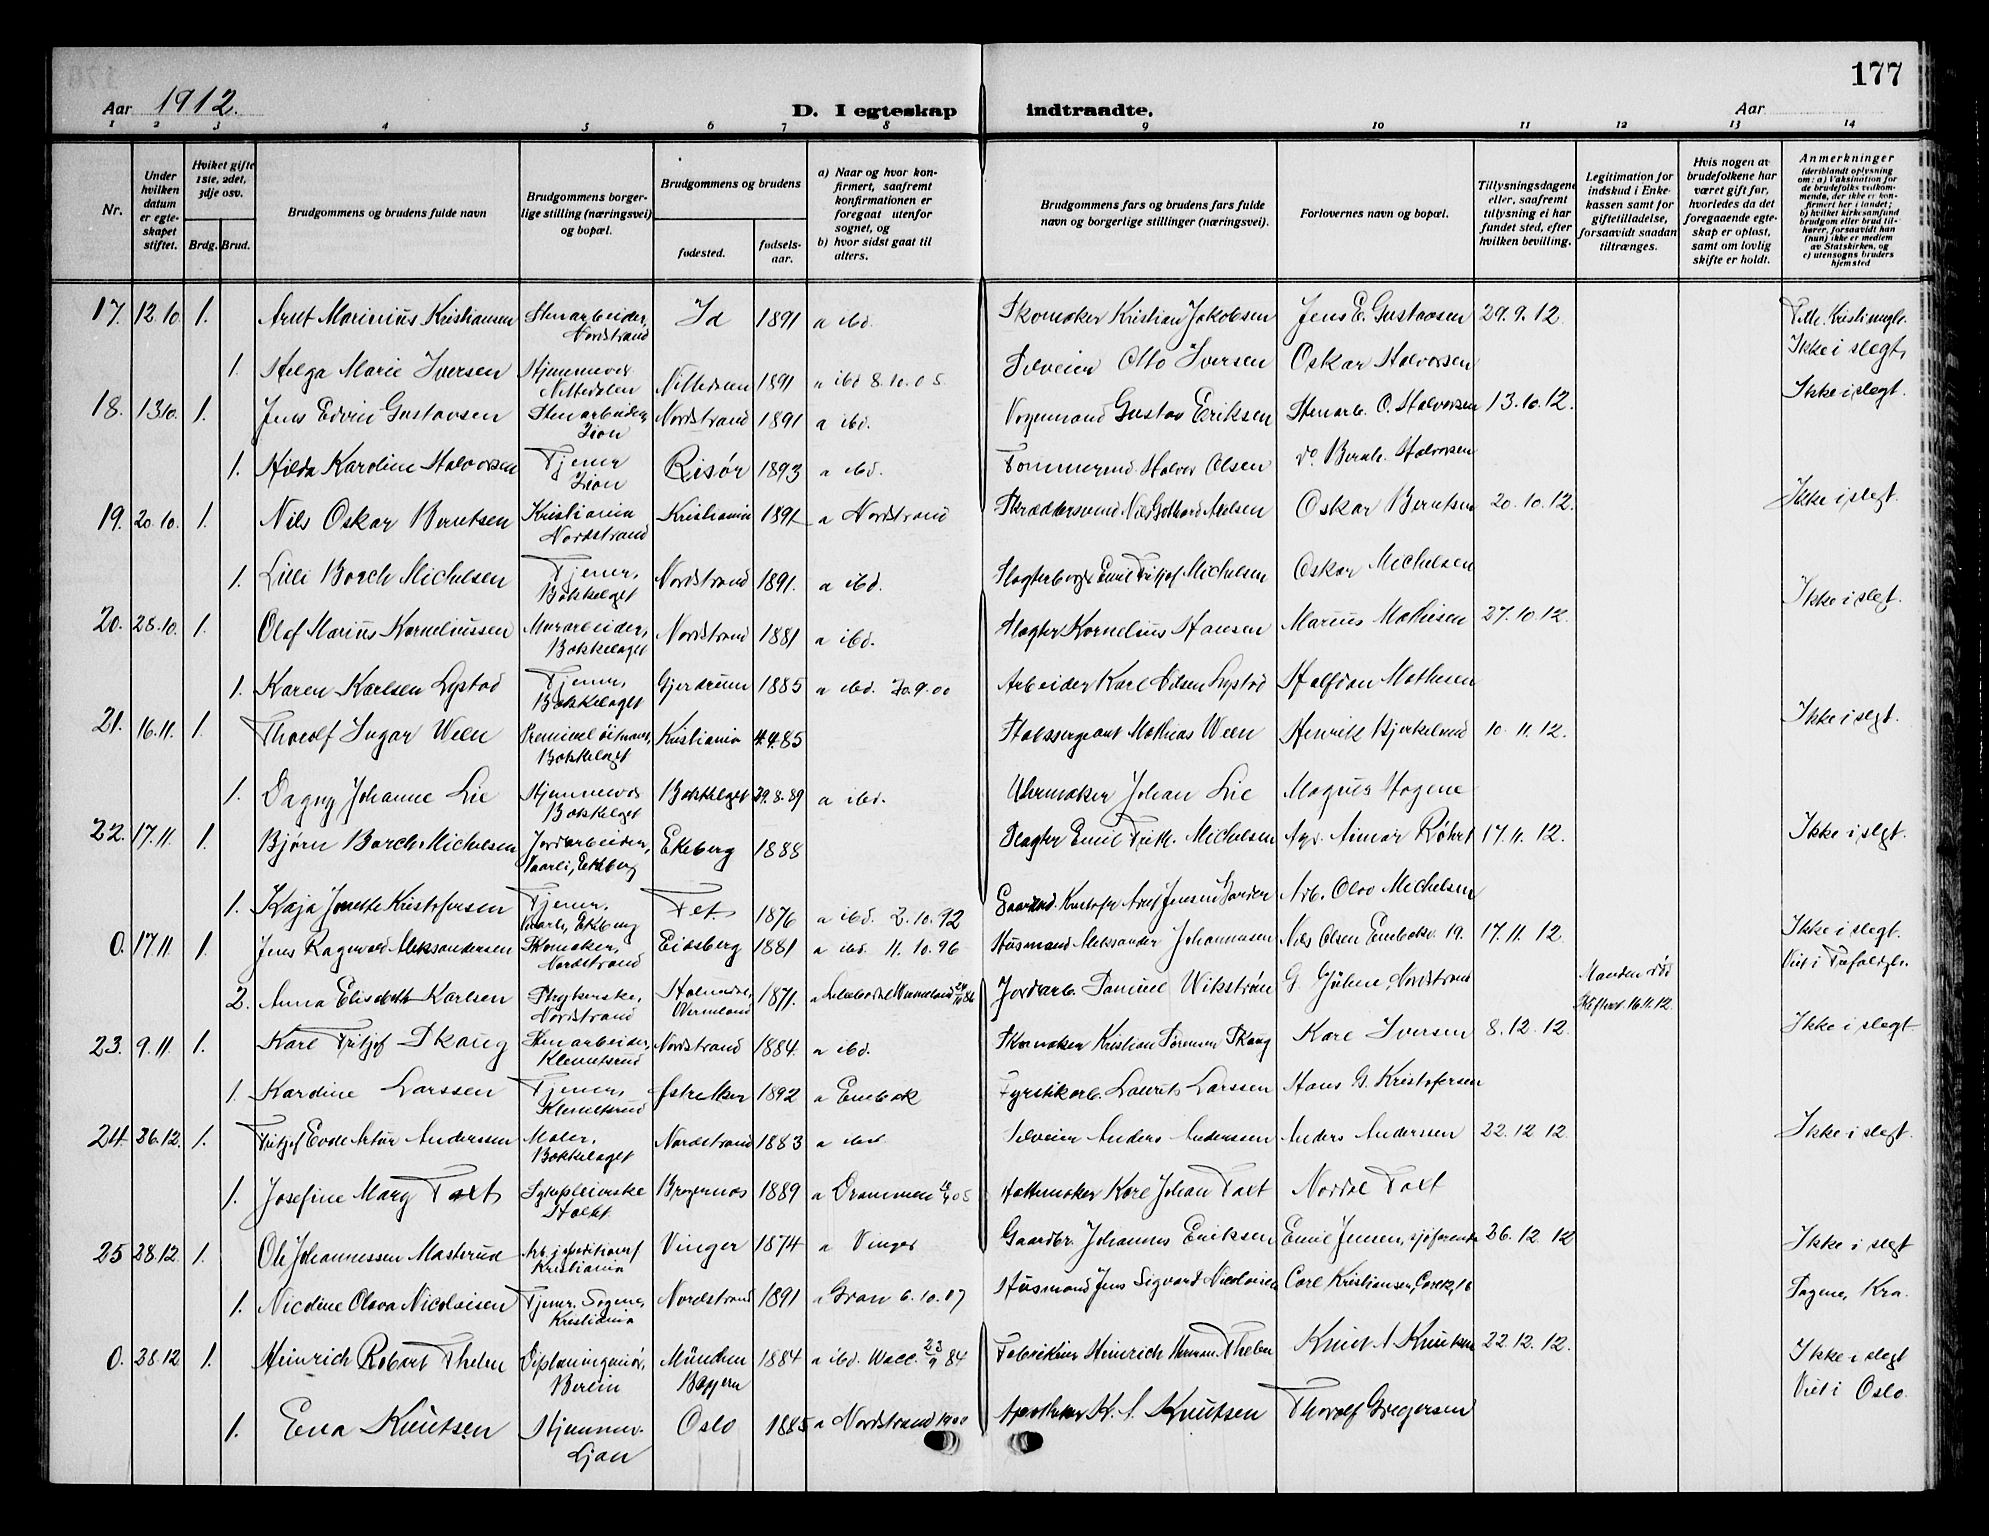 177
Aar 1912.
D. I egteskap indtraadte.
Aar
1 2 3 4 5 6 7 8 9 10 11 12 13 14
Nr.
Under hvilken datum er egteskapet stiftet.
Hviket gifte 1ste, 2det, 3dje osv.
Brdg. Brud.
Brudgommens og brudens fulde navn
Brudgommens borgerlige stilling (næringsvei) og bopæl.
Brudgommens og brudens
fødested.
fødselsaar.
a) Naar og hvor konfirmert, saafremt konfirmationen er foregaat utenfor sognet, og
b) hvor sidst gaat til alters.
Brudgommens fars og brudens fars fulde navn og borgerlige stillinger (næringsvei).
Forlovernes navn og bopæl.
Tillysningsdagene eller, saafremt tillysning ei har fundet sted, efter hvilken bevilling.
Legitimation for indskud i Enkekassen samt for giftetilladelse, forsaavidt saadan tiltrænges.
Hvis nogen av brudefolkene har været gift før, hvorledes da det foregaaende egteskap er opløst, samt om lovlig skifte er holdt.
Anmerkninger (deriblandt oplysning om: a) Vaksination for de brudefolks vedkommende, der ikke er konfirmert her i landet; b) hvilket kirkesamfund brudgom eller brud tilhører, forsaavidt han (hun) ikke er medlem av Statskirken, og c) utensogns bruders hjemsted
17. 12.10 1. Arnt Marinius Kristiansen Stenarbeider, Nordstrand Id 1891 a ibd. Skomaker Kristian Jakobsen Jens E. Gustavsen 29.9.12.
1. Helga Marie Iversen Hjemmev. Nittedalen Nittedalen 1891 a ibd 8.10.05 Selveier Otto Iversen Oskar Halvorsen Ikke i slegt.
18. 13.10. 1. Jens Edvin Gustavsen Stenarbeider, Nordstrand 1891 a ibd. Vognmand Gustav Eriksen Stenarb. O. Halvorsen 13.10.12. Ikke i slegt.
1. Hilda Karoline Halvorsen Tjener Risør 1893 a ibd. Tømmermd. Halvor Olsen do Bernh. Halvorsen
19. 20.10. 1. Nils Oskar Berntsen Kristiania Nordstrand Kristiania 1891 a Nordstrand Oskar Berntsen 20.10.12. Ikke i slegt.
1. Lilli Borch Michelsen Tjener, Bækkelaget Nordstrand 1891. a ibd. Emil Fritjof Michelsen Oskar Michelsen
20. 28.10. 1. Olaf Marius Korneliussen Murarbeider, Bækkelaget Nordstrand 1881 a ibd. Slagter Kornelius Hansen Marius Mathisen 27.10.12. Ikke i slegt.
1. Karen Karlsen Lystad Tjener, Bækkelaget Gjerdrum 1885 a ibd. 30.9.00 Arbeider Karl Nilsen Lystad Halfdan Mathisen
21. 16.11. 1. Thorolf Ingar Ween Bækkelaget Kristiania 4.4.85 Stabssergeant Mathias Ween Henrik Bjerkelund 10.11.12. Ikke i slegt.
1. Dagny Johanne Lie Hjemmev. Bækkelaget Bækkelaget 29.8.89 a ibd. Uhrmaker Johan Lie Magnus Hagene
22. 17.11. 1. Bjørn Borch Michelsen Jordarbeider, Vaarli, Ekeberg Ekeberg 1888 Slagter Emil Frith. Michelsen Einar Røhrt 17.11.12. Ikke i slegt.
1. Kaja Jonette Kristofersen Tjener, Vaarli, Ekeberg Fet 1876 a ibd. 2.10.92 Arb. Olav Michelsen
0. 17.11 1. Jens Ragnvald Aleksandersen Skomaker, Nordstrand Eidsberg 1881 a ibd. 11.10.96 Husmand Aleksander Johannesen Nils Olsen Enebakv. 19. 17.11.12. Ikke i slegt. Viet i Trefoldigh.
2. Anna Elisabeth Karlsen Strykerske, Nordstrand Wermland 1871. Jordarb. Samuel Wikstrøm Nordstrand Manden død Skifteret 16.11.12.
23. 9.11. 1. Karl Fritjof Skaug Stenarbeider, Klemetsrud Nordstrand 1884. a ibd. Skomaker Kristian Sørensen Skaug Karl Iversen 8.12.12. Ikke i slegt
1. Karoline Larssen Tjener, Klemetsrud Østre Aker 1892 a Enebak Fyrstikarb. Laurits Larssen Hans G. Kristofersen
24. 26.12. 1. Fritjof Artur Anderssen Maler, Bækkelaget Nordstrand 1883 a ibd Selveier Anders Anderssen Anders Anderssen 22.12.12. Ikke i slegt.
1. Josefine Marg Taxt Sykepleierske Bragernes 1889 a Drammen Hattemaker Karl Johan Taxt Nordal Taxt
25 28.12 1. Ole Johannessen Masterud Kristiania Vinger 1874 a Vinger Gaardbr. Johannes Eriksen Emil Jensen, 26.12.12 Ikke i slegt
1. Nicoline Olava Nicolaisen Tjener. Sagene, Kristiania Nordstrand 1891 a Gran 6.10.07 Husmand Jens Sigvard Nicolaisen Carl Kristiansen, Sagene, Kra.
0. 28.12 1. Heinrich Robert Thelen Diplomingeniør, Berlin München Bayern 1884 a ibd. Vacc. 23/9 84 Heinrich Herman Thelen Knut A Knutsen 22.12.12. Ikke i slegt Viet i Oslo.
1. Ena Knutsen Hjemmev. Ljan Oslo 1885 a Nordstrand 1900 Apotheker K. A. Knutsen Thorolf Gregersen